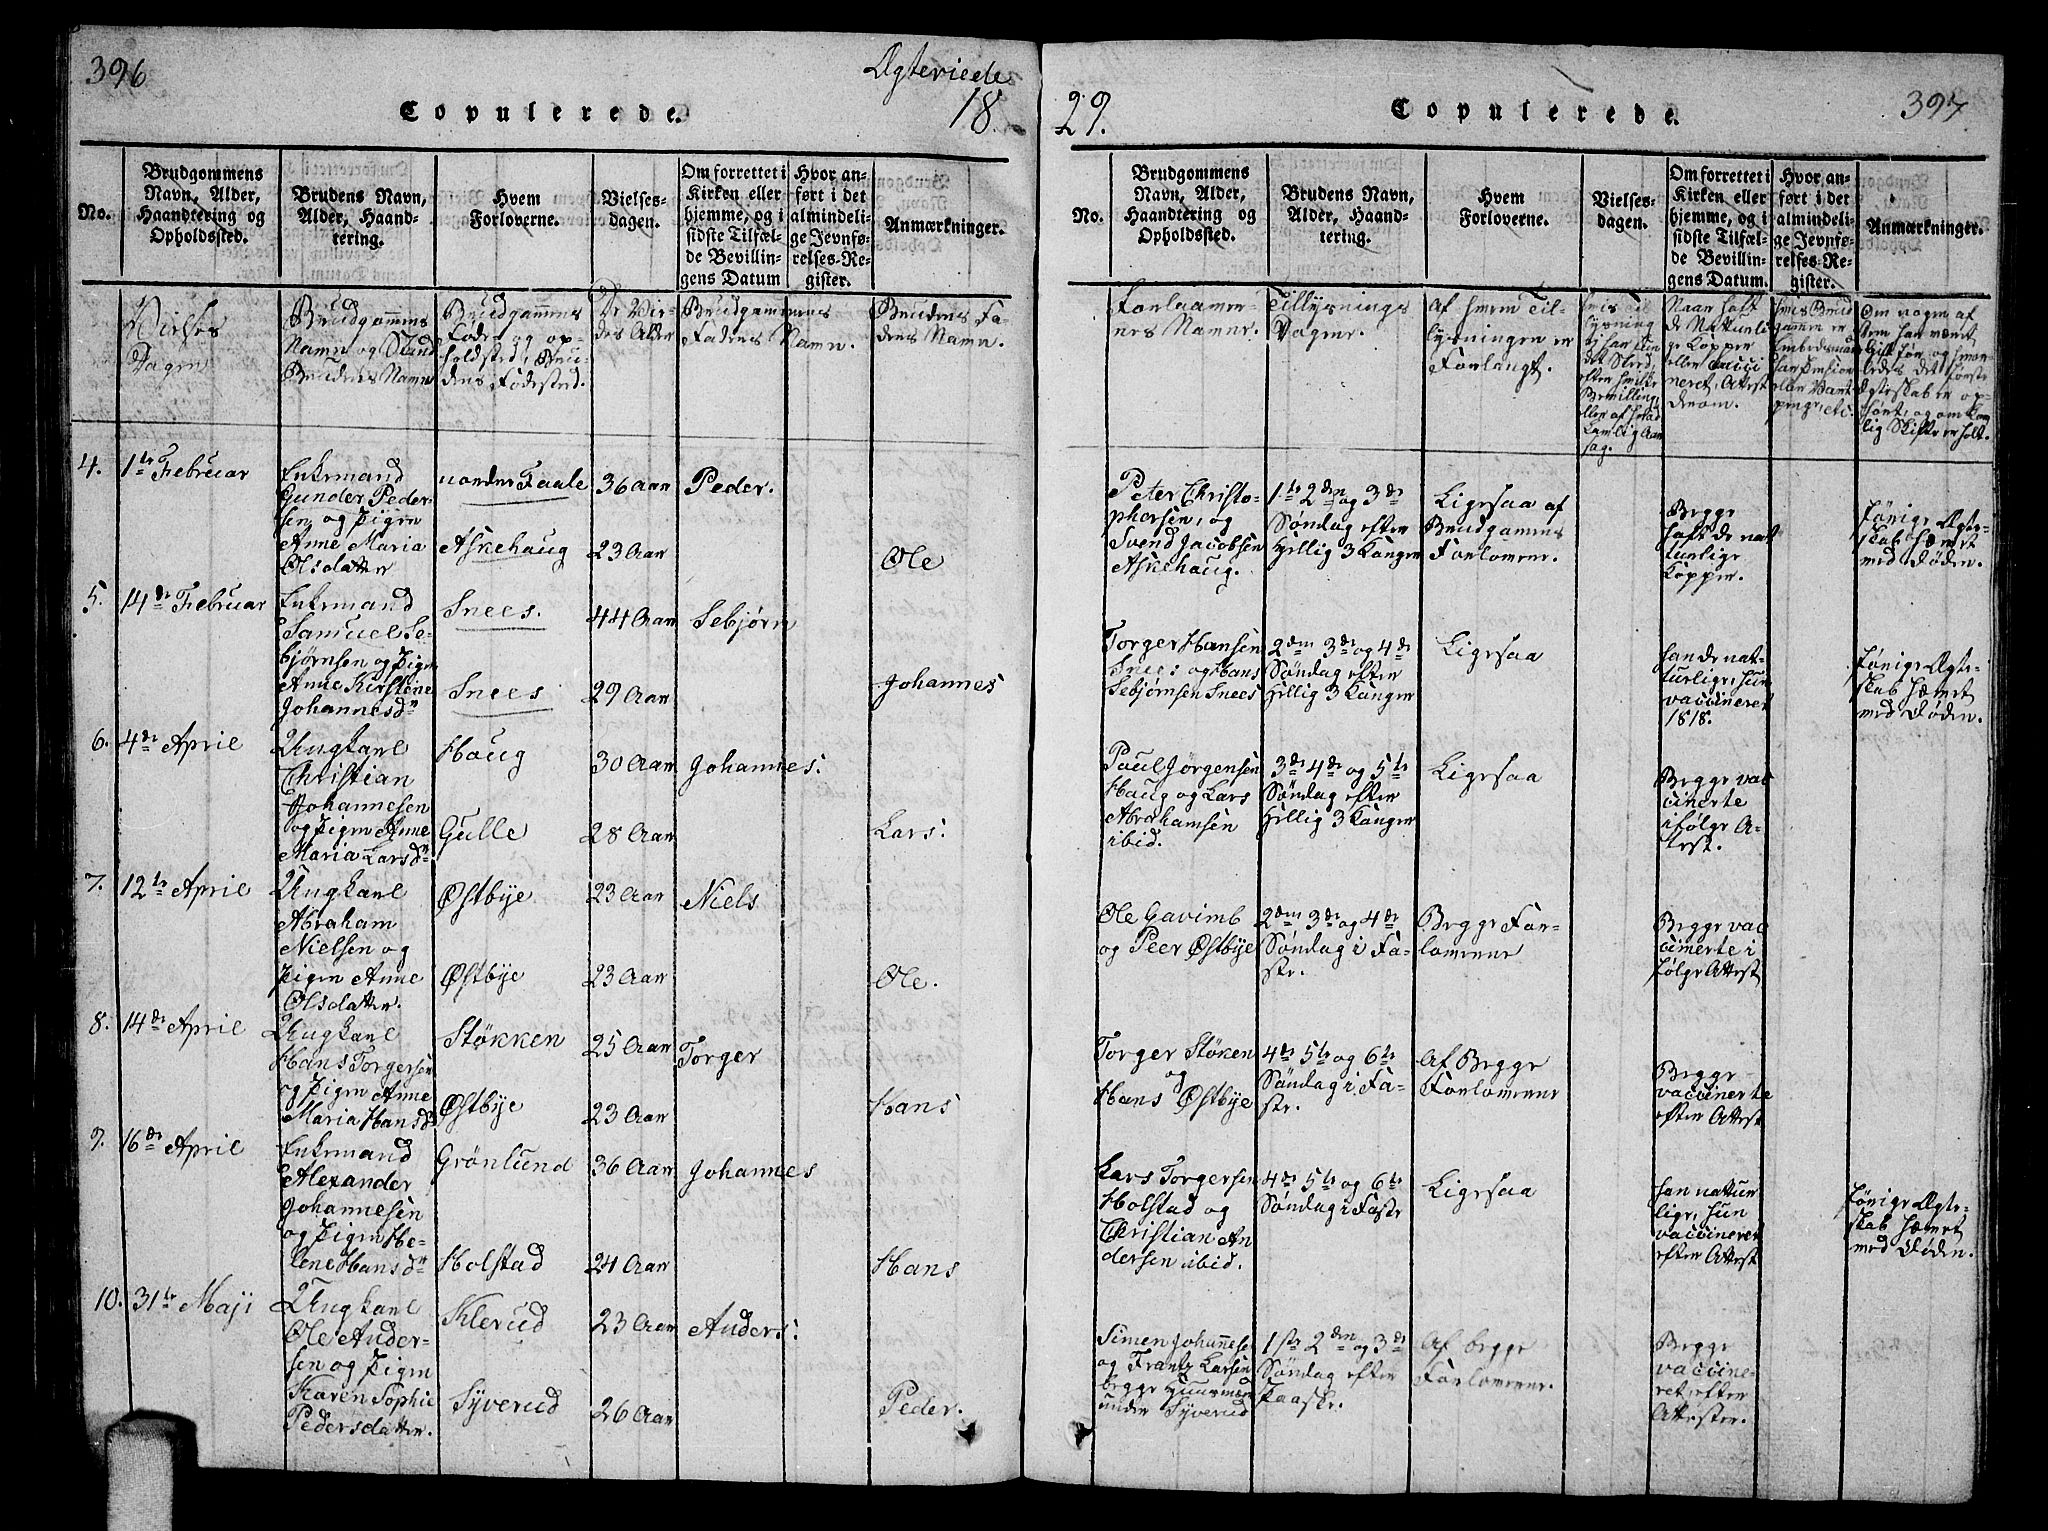 396
Ægteviede
18
Copulerede.
No.
Brudgommens
Navn, Alder,
Haandtering og
Opholdssted.
Brudens Navn,
Alder, Haand-
tering.
Hvem
Forloverne.
Vielses-
dagen.
Om forrettet i
Kirken eller
hjemme, og i
sidste Tilfæl-
de Bevillin-
gens Datum
Hvor an-
ført i det
almindeli-
ge Jevnfø-
relses-Re-
gister.
Anmærkninger.
Vielses
Dagen
Brudgommens
Navn og Stand
Brudens Navn
Brudgommens
Føde og op-
holdsted, Bru-
dens Fødested.
De Vi-
des Alder
Brudgommens
Faders Navn.
Brudens Fa-
ders Navn.
4. 1te Februar
Enkemand
Gunder Peder-
sen og Pigen
Anne Maria
Olsdatter
norder Faale
Askehaug
36 Aar
23 Aar
Peder.
Ole
5. 14de Februar
Enkemand
Samuel Se-
bjørnsen og Pigen
Anne Kirstine
Johannesdr
Snees.
Snees
44 Aar
29 Aar
Sebjørn
Johannes
6. 4de April
Ungkarl
Christian
Johannesen
og Pigen Anne
Maria Larsdr
Houg
Gulle
30 Aar
28 Aar
Johannes.
Lars.
7. 12te April
Ungkarl
Abraham
Nielsen og
Pigen Anne
Olsdatter.
Østbye
Østbye
23 Aar
23 Aar
Niels
Ole.
8. 14de April
Ungkarl
Hans Torgersen
og Pigen Anne
Maria Hansd
Støkken
Østbye
25 Aar
23 Aar
Torger
Hans
9. 16de April
Enkemand
Alexander
Johannesen
og Pigen He-
lene Hansdr
Grønlund
Holstad
36 Aar
24 Aar
Johannes
Hans
10. 31te Maji
Ungkarl
Ole Ander-
sen og Pigen
Karen Sophie
Pedersdatter.
Klerud
Syverud
23 Aar
26 Aar
Anders.
Peder.
29.
Copulerede.
397
No.
Brudgommens
Navn, Alder,
Haandtering og
Opholdssted.
Brudens Navn,
Alder, Haand-
tering.
Hvem
Forloverne.
Vielses-
dagen.
Om forrettet i
Kirken eller
hjemme, og i
sidste Tilfæl-
de Bevillin-
gens Datum.
Hvor an-
ført i det
almindeli-
ge Jevnfø-
relses-Re-
gister.
Anmærkninger.
Forlover-
nes Navne.
Tillysnings
Dagene.
Af hvem Til-
lysningen er
Forlangt.
Hvis Til
lysning
ej har fun
det Sted,
efter hvilken
Bevilling,
eller af hvad
Lovlig Aar
sag.
Naar haft
de Naturli
ge Kopper
eller vacci
neret, Attest
derom.
Hvis Brud
gommen er
Embedsmand
har Pension
eller Vart
penge, etc.
Om nogen af
dem har været
gift før, og hvor
ledes det første
Ægteskab er op-
hørt, og om Lov
lig Skifte er holt.
Peter Christo-
phersen, og
Svend Jacobsen
Askehaug.
1te 2den og 3de
Søndag efter
Hellig 3 Konger
Ligesaa af
Brudgommens
Forlovere
Begge
haft de nat
turlige
Kopper.
forrige Ægte-
skab hævet
med Døden.
Torger Hansen
Snees og Hans
Sebjørnsen Snees
2den 3de og 4de
Søndag efter
Hellig 3 Konger
Ligesaa
han de nat-
turlige, hun
vaccineret
1818.
forrige Ægte-
skab hævet
med Døden.
Paul Jørgensen
Houg og Lars
Abrahamsen
ibid.
3de 4de og 5te
Søndag efter
Hellig 3 Konger
Ligesaa
Begge vac
cinerte
ifølge A-
test.
Ole Gavimb
og Peer Østbye
2den 3de og 4de
Søndag i Fa-
ste.
Begge For-
loverne
Begge vac
cinerte i
følge Attest
Torger Støken
og
Hans Østbye
4de 5te og 6te
Søndag i Fa-
ste.
Af Begge
Forloverne
Begge
vaccinerte
efter Attest
Lars Torgersen
Holstad og
Christian An
dersen ibid.
4de 5te og 6te
Søndag i Faste
Ligesaa
han nattur
lige, hun
vaccineret
efter Attest
forrige Ægte-
skab hævet
med Døden.
Simen Johannese
og Frantz Larsen
begge Huusmæn
under Syverud
1ste 2den og 3de
Søndag efter
Paaske.
Af begge
Forloverne.
Begge
vaccine-
ret, efter
Attester.